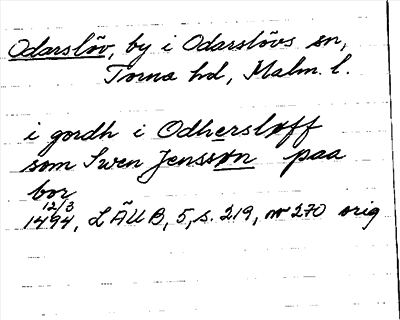 Odarslöv, by i Odarslövs sn,
Torna hd, Malm. l.
i gordh i Odhersløff
som Swen Jenssøn paa
bor
12/3
1494, LÄUB, 5, s. 219, nr 270 orig